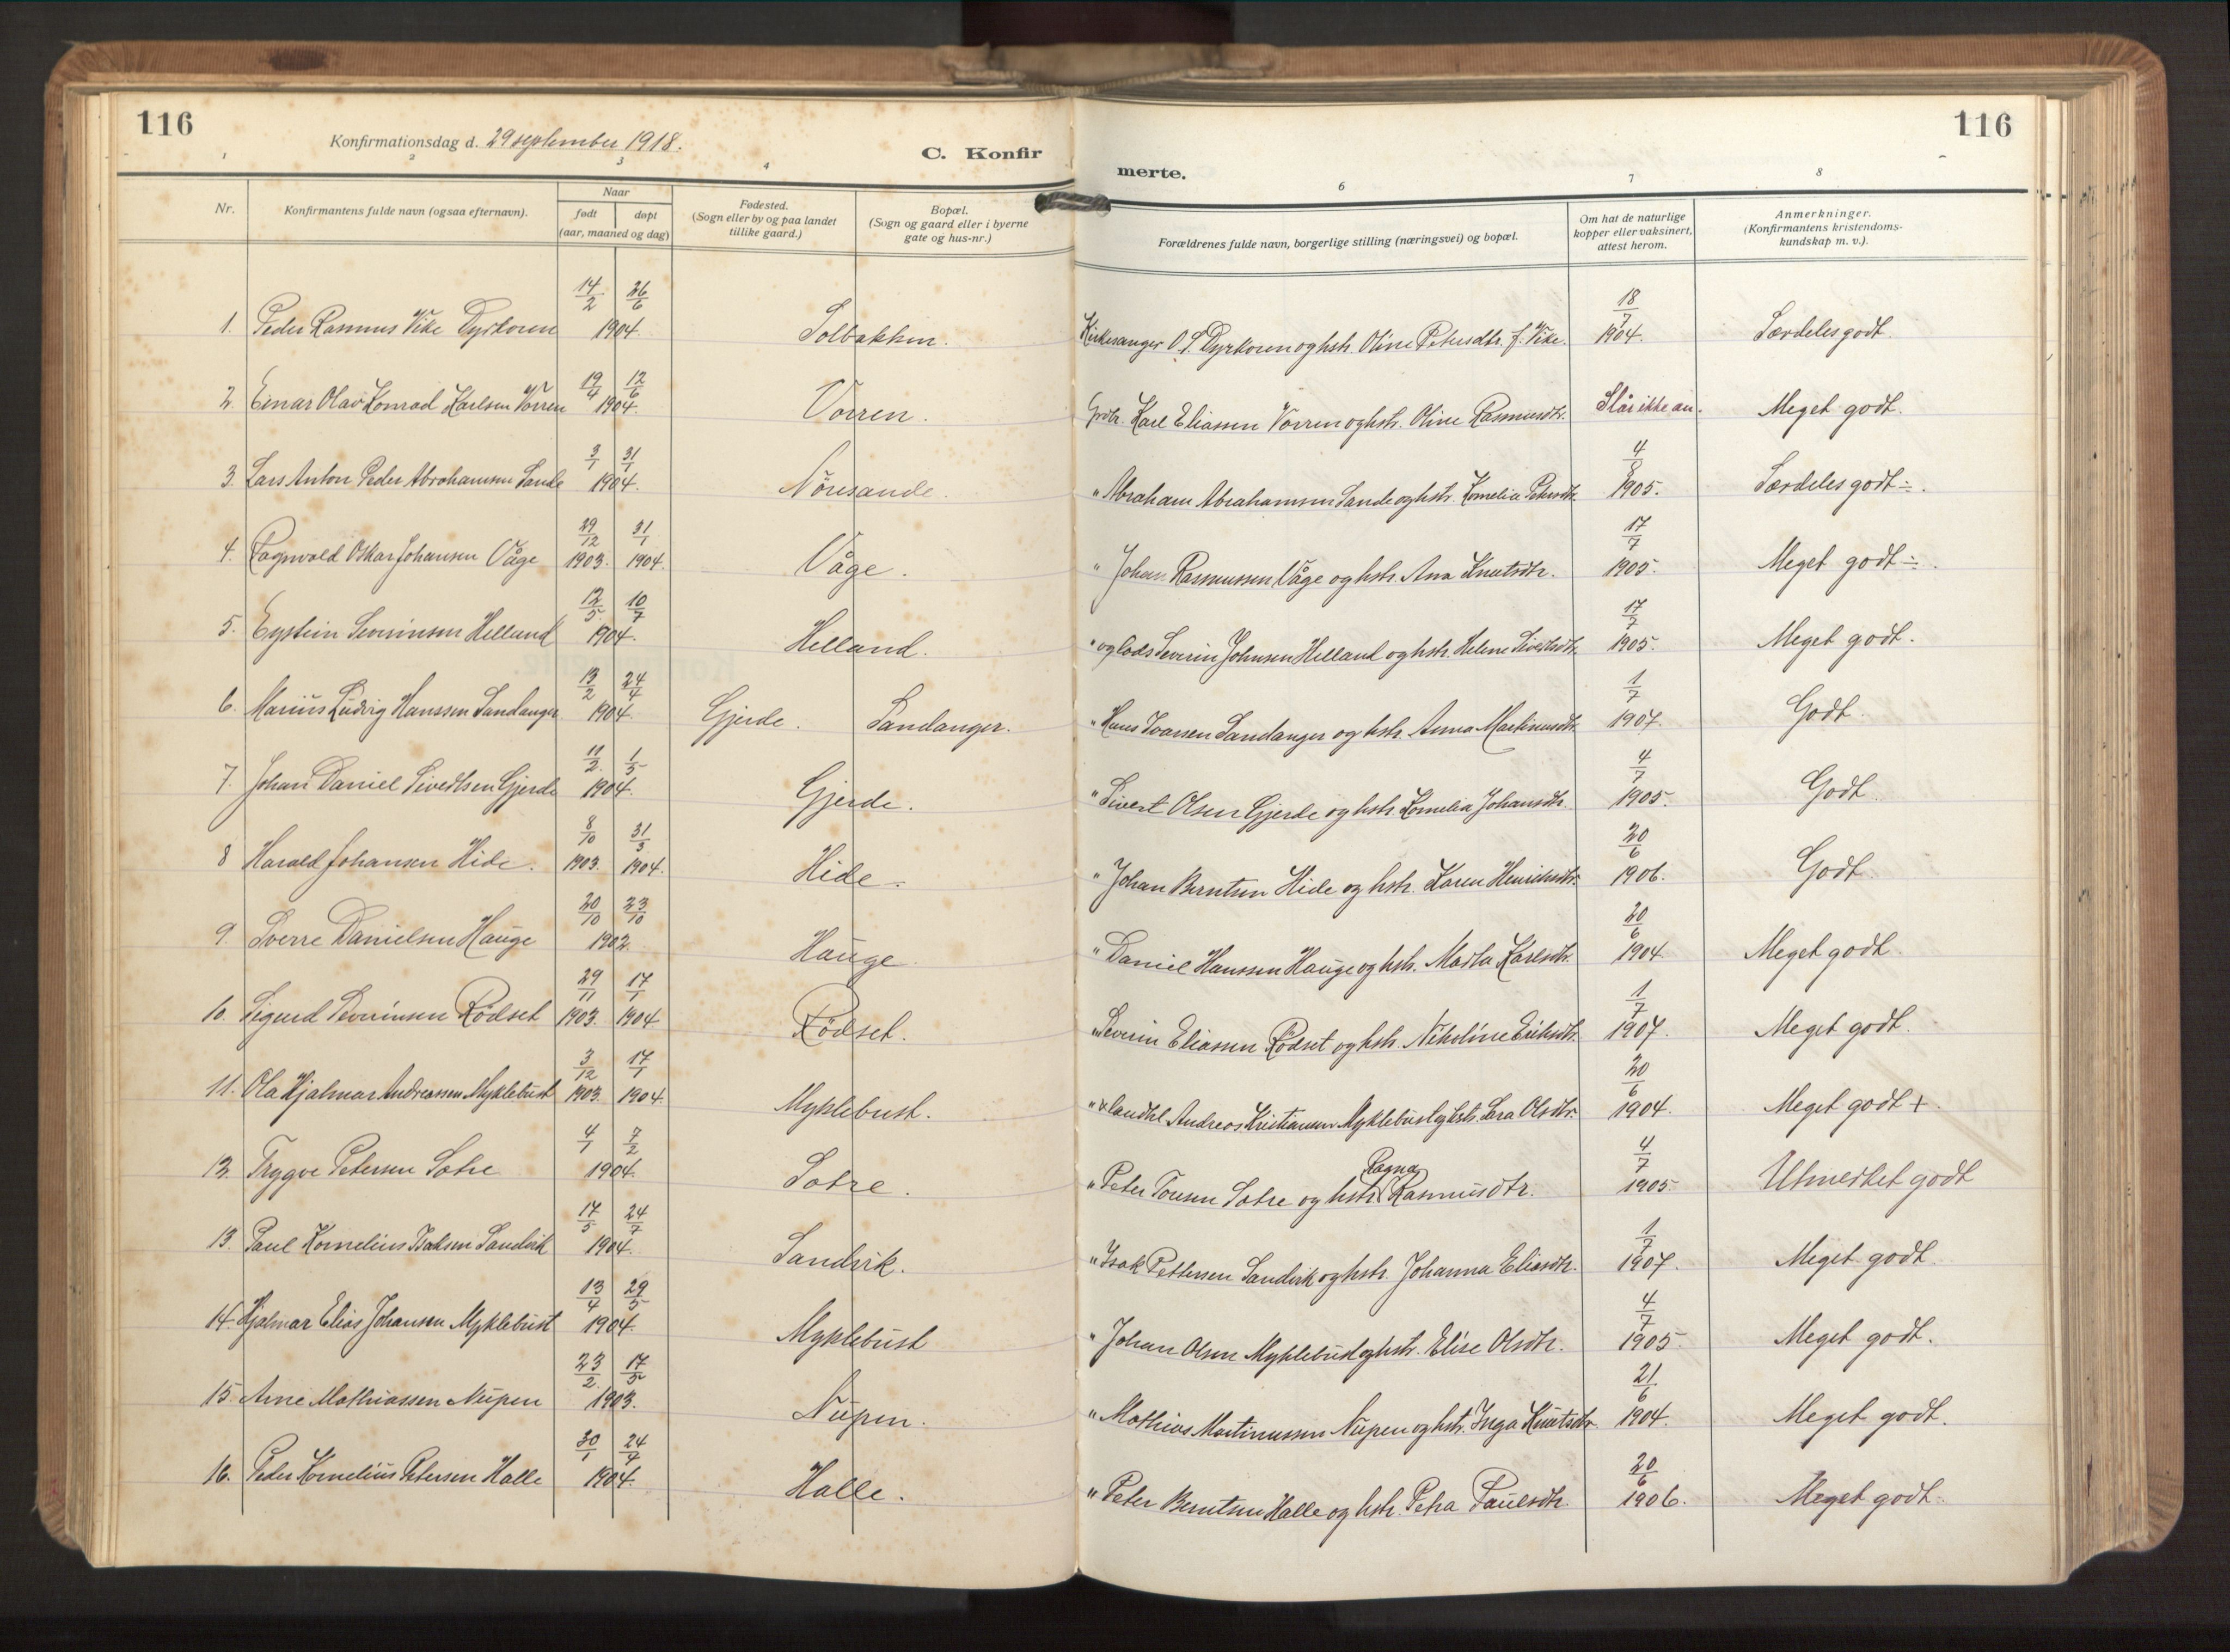 116
Konfirmationsdag d. 29 september 1918.
C. Konfir
merte.
116
1 2 3 4 6 7 8
Nr.
Konfirmantens fulde navn (ogsaa efternavn).
Naar
født døpt
(aar, maaned og dag)
Fødested.
(Sogn eller by og paa landet
tillike gaard.)
Bopæl.
(Sogn og gaard eller i byerne
gate og hus-nr.)
Forældrenes fulde navn, borgerlige stilling (næringsvei) og bopæl.
Om hat de naturlige
kopper eller vaksinert,
attest herom.
Anmerkninger.
(Konfirmantens kristendoms-
kundskap m. v.).
1. Peder Rasmus Vike Dyrkoren 14/2 26/6 1904. Solbakken. Kirkesanger O. S. Dyrkoren og hstr. Oline Petersdtr. f. Vike. 18/7 1904. Særdeles godt.
2. Einar Olav Konrad Karlsen Vorren 19/4 12/6 1904. Vorren. Grdbr. Karl Eliassen Vorren og hstr. Oline Rasmusdtr. Slår ikke an. Meget godt.
3. Lars Anton Peder Abrahamsen Sande 3/1 31/1 1904. Nöresande. " Abraham Abrahamsen Sande og hstr. Kornelia Petersdtr. 4/8 1905. Særdeles godt ÷.
4. Ragnvald Oskar Johansen Våge 29/12 1903. 31/1 1904. Våge. " Johan Rasmussen Våge og hstr. Ana Knutsdtr. 17/7 1905. Meget godt ÷.
5. Eystein Severinsen Helland 12/5 10/7 1904. Helland. " og lods Severin Johnsen Helland og hstr. Helene Sivertsdtr. 17/7 1905. Meget godt.
6. Marius Ludvig Hanssen Sandanger 13/2 24/4 1904. Gjerde. Sandanger. " Hans Ivarsen Sandanger og hstr. Anna Martinusdtr. 1/7 1907. Godt.
7. Johan Daniel Sivertsen Gjerde 11/2 1/5 1904. Gjerde. " Sivert Olsen Gjerde og hstr. Kornelia Johansdtr. 4/7 1905. Godt
8 Harald Johansen Hide. 8/10 1903. 31/3 1904. Hide. " Johan Berntsen Hide og hstr. Karen Henriksdtr. 20/6 1906. Godt
9. Sverre Danielsen Hauge 20/10 23/10 1902. Hauge. " Daniel Hanssen Hauge og hstr. Marta Karlsdtr. 20/6 1904. Meget godt.
10. Sigurd Severinsen Rödset 29/11 1903. 17/1 1904 Rödset. " Severin Eliassen Rödset og hstr. Nikoline Eriksdtr. 1/7 1907. Meget godt.
11. Ola Hjalmar Andreassen Myklebust 3/12 1903. 17/1 1904. Myklebust. " & landhl. Andreas Kristiansen Myklebust og hstr. Sara Olsdtr. 20/6 1904. Meget godt +.
12. Trygve Petersen Sotre 4/1 7/2 1904. Sotre. " Peter Toresen Sotre og hstr. Ragna Rasmusdtr. 4/7 1905. Utmerket godt
13. Paul Kornelius Isaksen Sandvik 17/5 24/7 1904. Sandvik. " Isak Pettersen Sandvik og hstr. Johanna Eliasdtr. 1/7 1907. Meget godt
14. Hjalmar Elias Johansen Myklebust 13/4 29/5 1904. Myklebust " Johan Olsen Myklebust og hstr. Elise Olsdtr. 4/7 1905. Meget godt.
15. Arne Mathiassen Nupen 23/2 17/5 1903. Nupen. " Mathias Martinussen Nupen og hstr. Inga Knutsdtr. 21/6 1904. Meget godt.
16. Peder Kornelius Petersen Halle 30/1 24/4 1904. Halle. " Peter Berntsen Halle og hstr. Petra Paulsdtr. 20/6 1906. Meget godt.